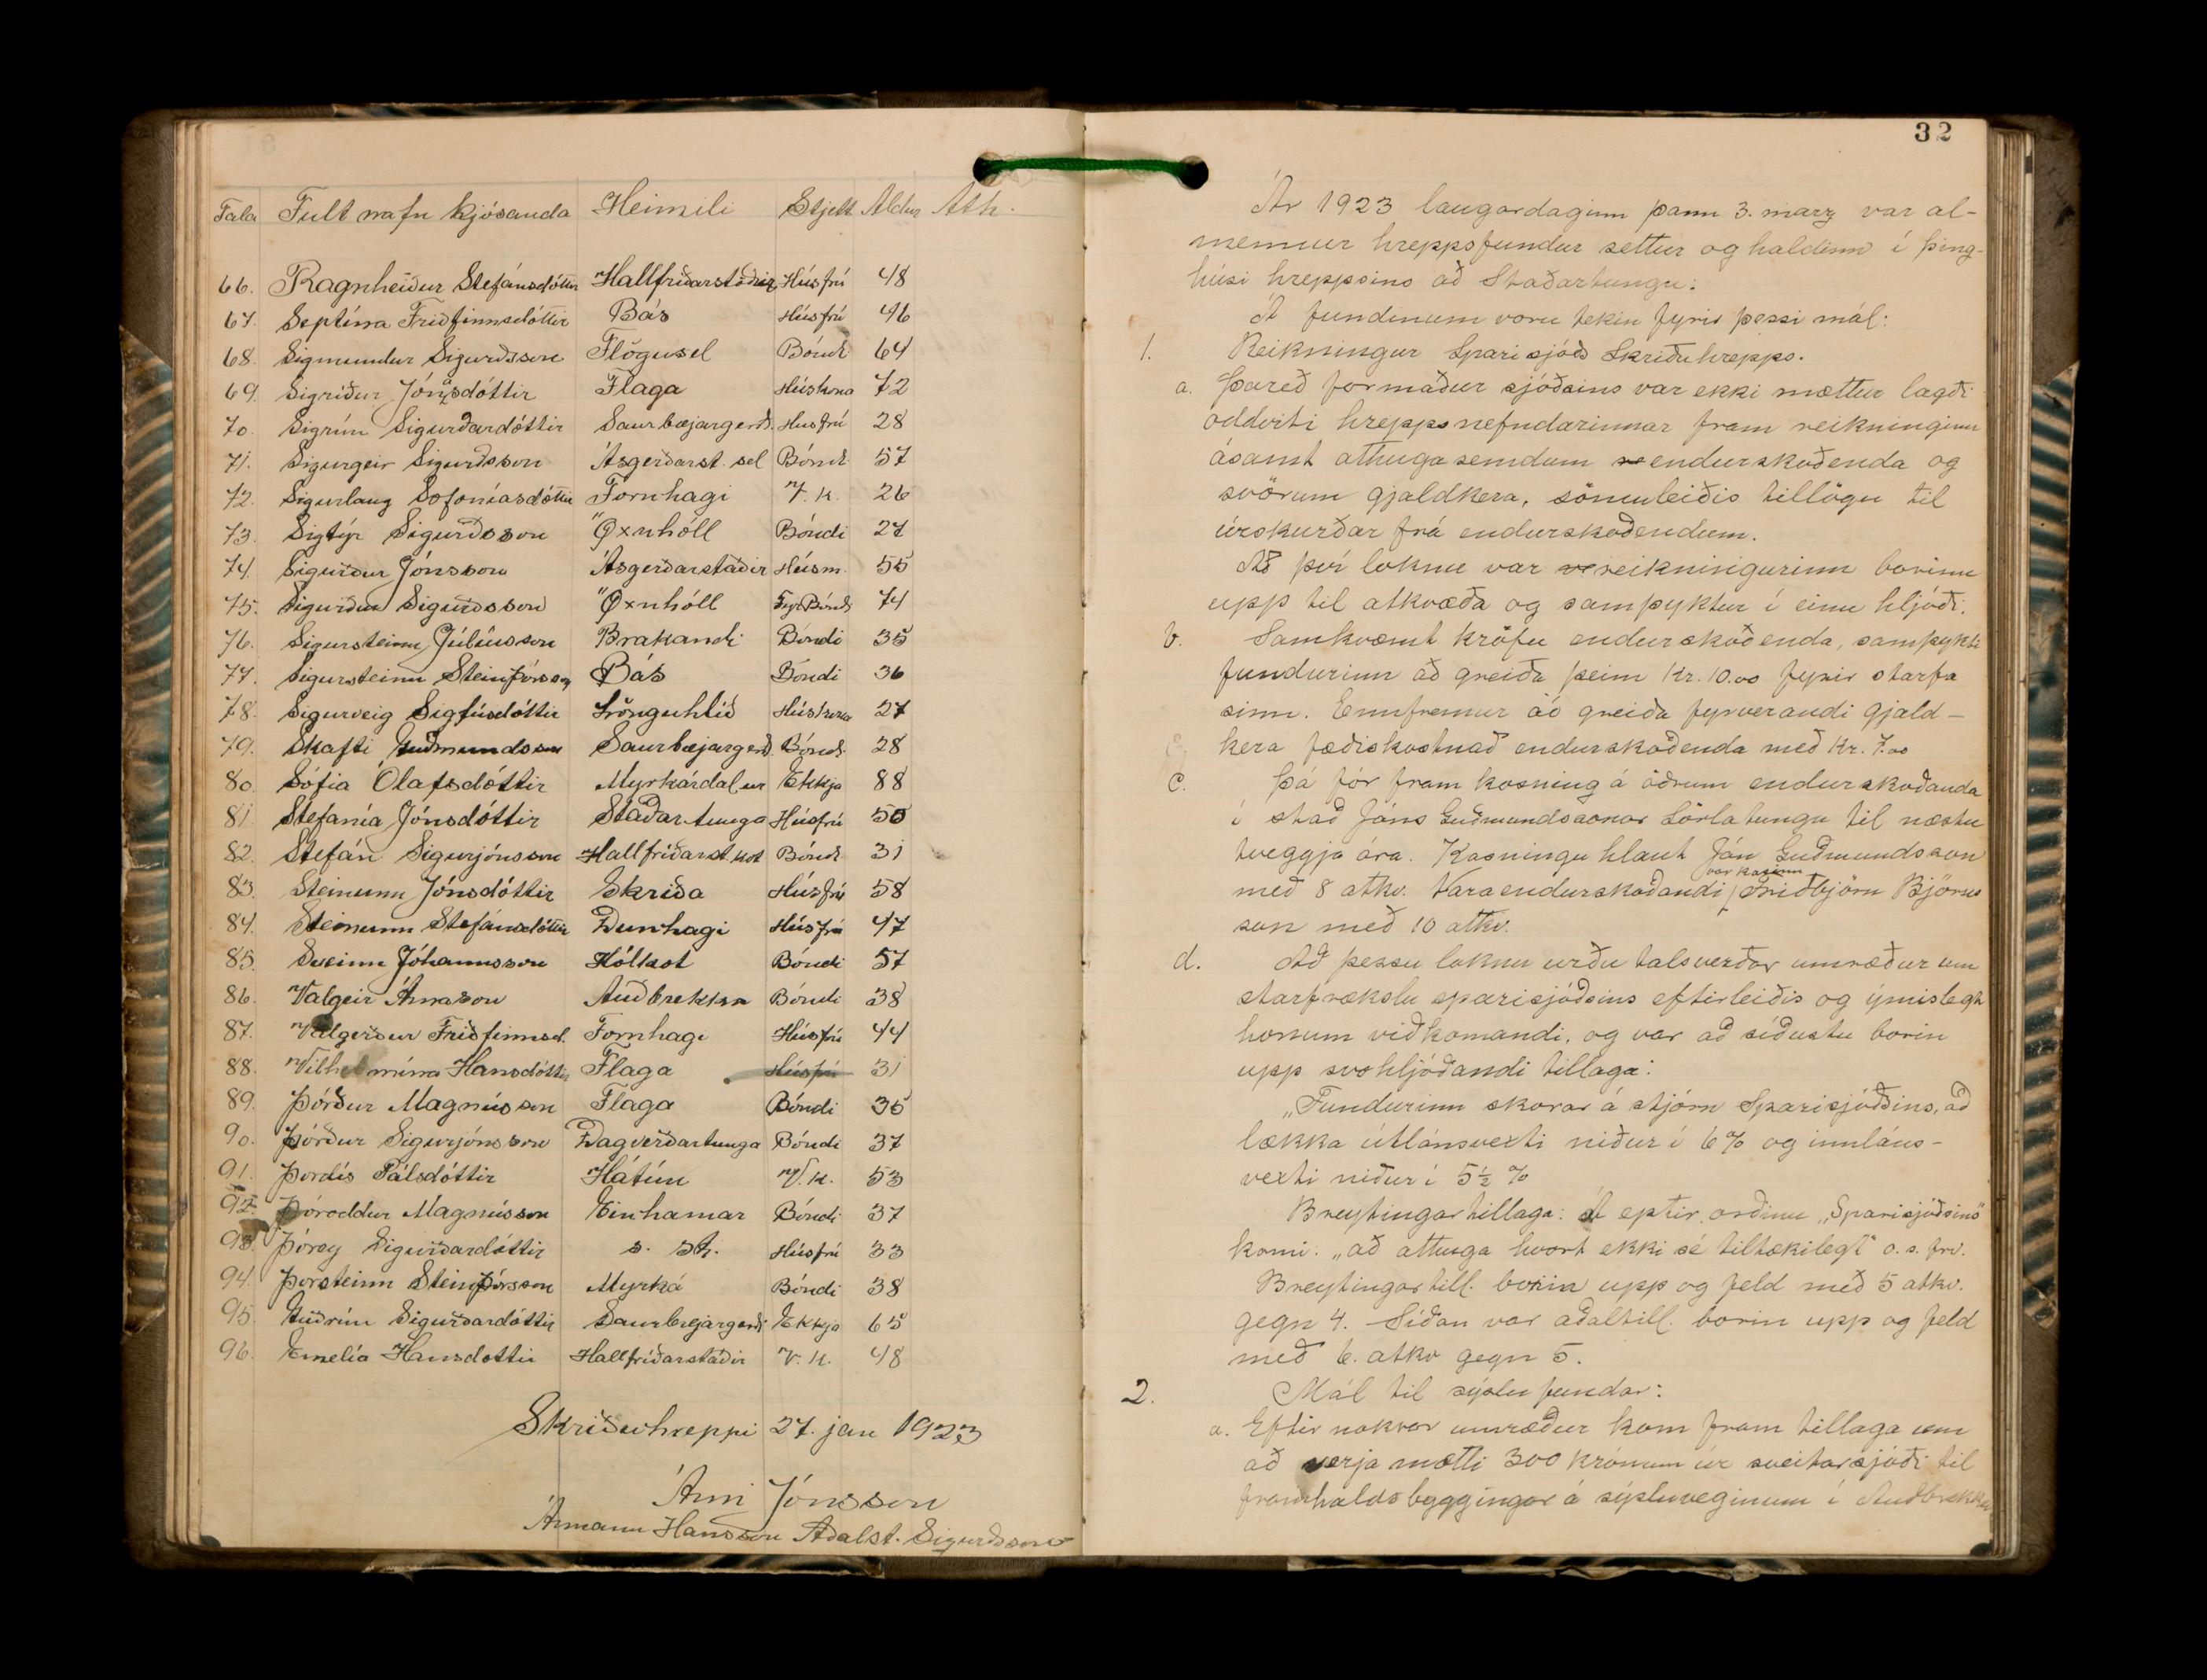 Tala Fult nafn kjósanda Heimili Stjett Aldur Ath.
66. Ragnheiður Stefánsdóttir Hallfríðarstaðir Húsfrú 48
67. Septíma Friðfinnsdóttir Bás Húsfrú 46
68. Sigmundur Sigurðsson Flögusel Bóndi 64
69. Sigríður Jónasdóttir Flaga Húskona 72
70. Sigrún Sigurðardóttir Saurbæjargerði Húsfrú 28
71. Sigurgeir Sigurðsson Ásgerðarst. sel Bóndi 57
72. Sigurlaug Sofoníasdóttir Fornhagi V.k. 26
73. Sigtýr Sigurðsson Öxnhóll Bóndi 27
74. Sigurður Jónsson Ásgerðarstaðir Húsm. 55
75. Sigurður Sigurðsson Öxnhóll Fyr.Bóndi 74
76. Sigursteinn Júlíusson Brakandi Bóndi 35
77. Sigursteinn Steinþórsson Bás Bóndi 36
78. Sigurveig Sigfúsdóttir Lönguhlíð Húskona 27
79. Skafti Guðmundsson Saurbæjargerð. Bóndi 28
80. Sófía Ólafsdóttir Myrkárdalur Ekkja 88
81. Stefanía Jónsdóttir Staðartunga Húsfrú 50
82. Stefán Sigurjónsson Hallfríðarst.kot Bóndi 31
83. Steinunn Jónsdóttir Skriða Húsfrú 58
84. Steinunn Stefánsdóttir Dunhagi Húsfrú 47
85. Sveinn Jóhannsson Hólkot Bóndi 57
86. Valgeir Árnason Auðbrekka Bóndi 38
87. Valgerður Friðfinnsd. Fornhagi Húsfrú 44
88. Vilhelmína Hansdóttir Flaga Húsfrú 31
89. Þórður Magnússon Flaga Bóndi 35
90. Þórður Sigurjónsson Dagverðartunga Bóndi 37
91. Þordís Pálsdóttir Hátún V.k. 53
92. Þóroddur Magnússon Einhamar Bóndi 37
93. Þórey Sigurðardóttir s. st. Húsfrú 33
94. Þorsteinn Steinþórsson Myrká Bóndi 38
95. Guðrún Sigurðardóttir Saurbæjargerði Ekkja 65
96. Emelía Hansdóttir Hallfríðarstaðir V.k. 48
Skriðuhreppi 27. jan 1923
Árni Jónsson
Ármann Hansson Aðalst. Sigurðsson
32
Ár 1923 laugardaginn þann 3. marz var al-
mennur hreppsfundur settur og haldinn í þing-
húsi hreppsins að Staðartungu:
Á fundinum voru tekin fyrir þessi mál:
1. Reikningur Sparisjóðs Skriðuhrepps.
a. Þareð formaður sjóðsins var ekki mættur lagði
oddviti hreppsnefndarinnar fram reikninginn
ásamt athugasemdum endurskoðenda og
svörum gjaldkera, sömuleiðis tillögu til
úrskurðar frá endurskoðendum.
Að því loknu var reikningurinn borinn
upp til atkvæða og samþyktur í einu hljóði.
b. Samkvæmt kröfu endurskoðenda, samþykti
fundurinn að greiða þeim Kr. 10.00 fyrir starfa
sinn. Ennfremur að greiða fyrverandi gjald-
kera fæðiskostnað endurskoðenda með Kr. 7.00
c. Þá fór fram kosning á öðrum endurskoðanda
í stað Jóns Guðmundssonar Sörlatungu til næstu
tveggja ára. Kosningu hlaut Jón Guðmundsson
með 8 atkv. Varaendurskoðandi var kosinn Friðbjörn Björns
son með 10 atkv.
d. Að þessu loknu urðu talsverðar umræður um
starfrækslu sparisjóðsins eftirleiðis og ýmislegt
honum viðkomandi, og var að síðustu borin
upp svohljóðandi tillaga:
„Fundurinn skorar á stjórn Sparisjóðsins, að
lækka útlánsvexti niður í 6% og innláns-
vexti niður í 5½ %
Breytingartillaga: Á eptir orðinu „Sparisjóðsins"
komi: „að athuga hvort ekki sé tiltækilegt" o. s. frv.
Breytingartill. borin upp og feld með 5 atkv.
gegn 4. Síðan var aðaltill. borin upp og feld
með 6. atkv gegn 5.
2. Mál til sýslufundar:
a. Eftir nokrar umræður kom fram tillaga um
að verja mætti 300 krónum úr sveitarsjóði til
framhaldsbyggingar á sýsluveginum í Auðbrekku